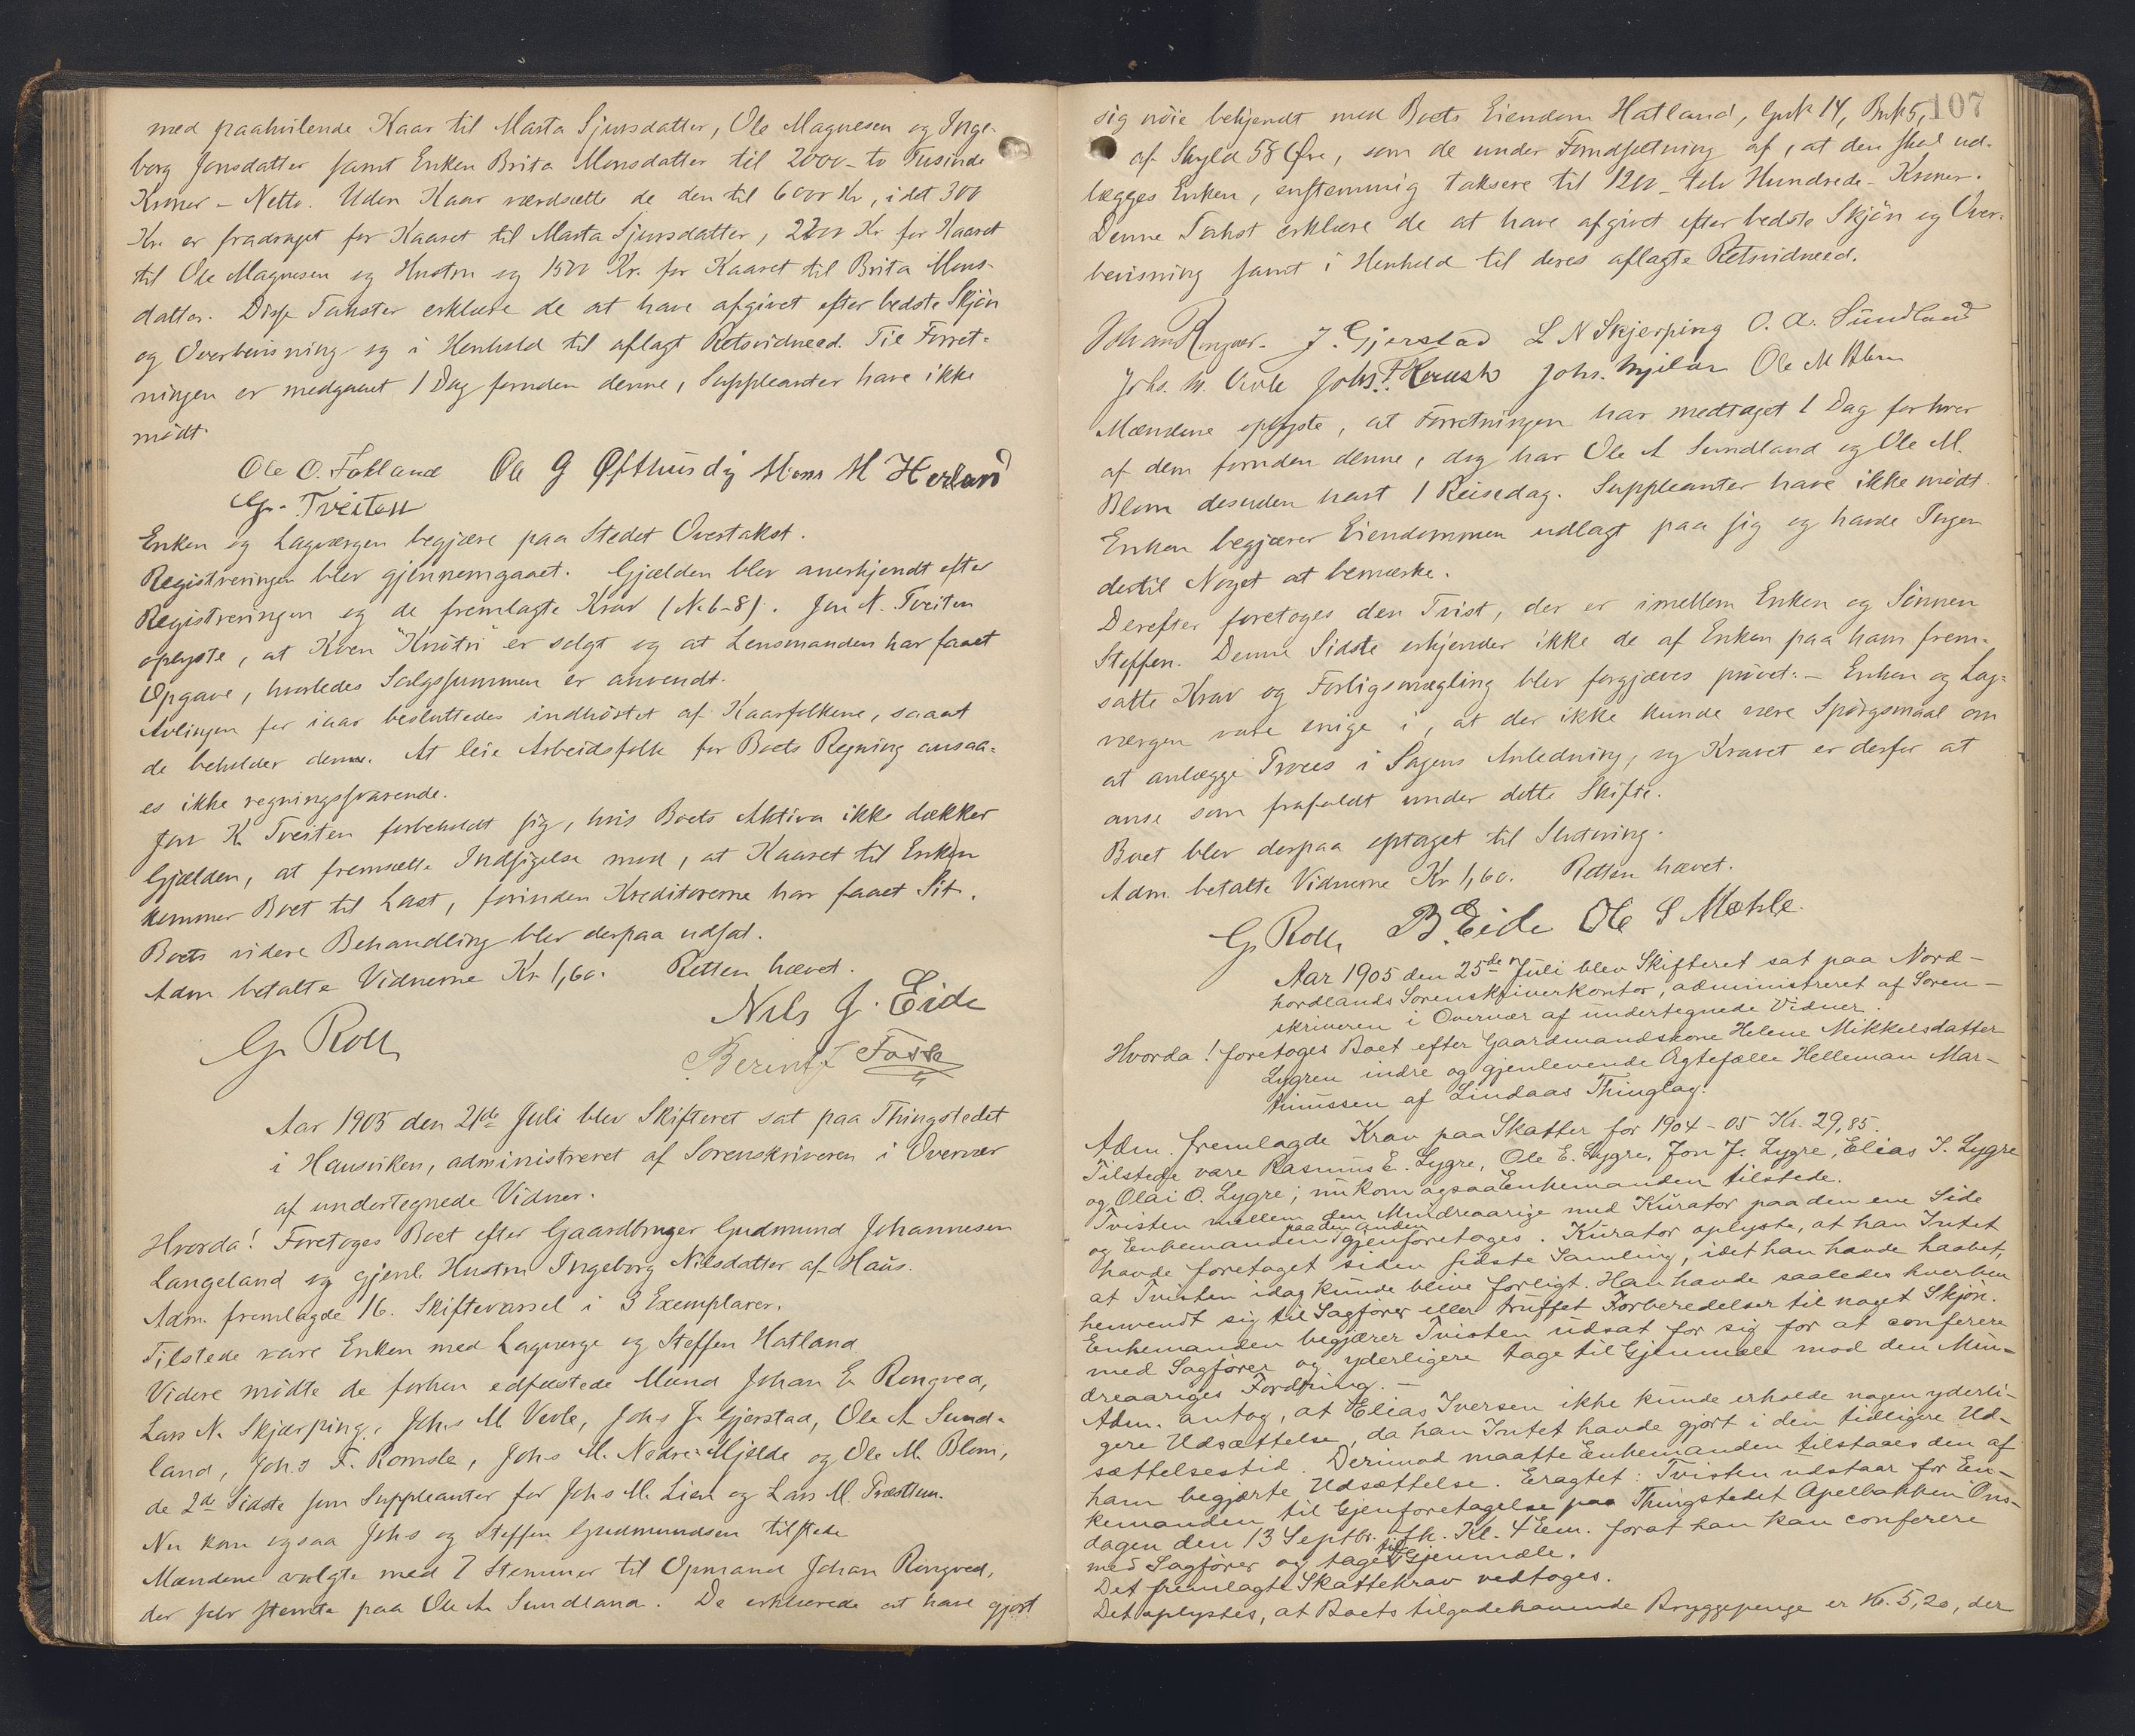 med paahvilende Kaar til Marta Sjursdatter, Ole Magnesen og Inge-
borg Jonsdatter samt Enken Brita Monsdatter til 2000 - to Tusinde
Kroner - Netto. Uden Kaar værdsætte de den til 6000 Kr, idet 300
Kr. er fradraget for Kaaret til Marta Sjursdatter, 2200 Kr for Kaaret
til Ole Magnesen og Hustru og 1500 Kr. for Kaaret til Brita Mons-
datter. Disse Takster erklære de at have afgivet efter bedste Skjøn
og Overbevisning og i Henhold til aflagt Retsvidneed. Til Forret-
ningen er medgaaet 1 Dag foruden denne, Suppleanter have ikke
mødt.
Ole O. Fotland Ole G Øfthusdig Mons M Herland
G. Tveiten
Enken og Lagværgen begjære paa Stedet Overtakst.
Registreringen blev gjennemgaaet. Gjælden blev anerkjendt efter
Registreringen og de fremlagte Krav (No 6-8). Jon N. Tveiten
oplyste, at Koen "Knøtri" er solgt og at Lensmanden har faaet
Opgave, hvorledes Salgssummen er anvendt.
Avlingen for iaar besluttedes indhøstet af Kaarfolkene, saaat
de beholder denne. At leie Arbeidsfolk for Boets Regning ansaa-
es ikke regningssvarende.
Jon K Tveiten forbeholdt sig, hvis Boets Aktiva ikke dækker
Gjælden, at fremsætte Indsigelse mod, at Kaaret til Enken
kommer Boet til Last, forinden Kreditorerne har faaet Sit.
Boets videre Behandling blev derpaa udsat.
Adm betalte Vidnerne Kr 1,60. Retten hævet.
G. Roll Nils J. Eide
Berint Fosse
Aar 1905 den 21de Juli blev Skifteret sat paa Thingstedet
i Hausviken, administreret af Sorenskriveren i Overvær
af undertegnede Vidner.
Hvorda! Foretoges Boet efter Gaardbruger Gudmund Johannesen
Langeland og gjenl. Hustru Ingeborg Nilsdatter af Haus.
Adm. fremlagde 16. Skiftevarsel i 3 Exemplarer.
Tilstede vare Enken med Lagværge og Steffen Hatland.
Videre mødte de forhen edfæstede Mænd Johan E. Rongved,
Lars N. Skjærping, Johs M Veole, Johs J. Gjerstad, Ole A Sund-
land, Johs F. Romsle, Johs M. Nedre-Mjelde og Ole M. Blom,
de 2de Sidste som Suppleanter for Johs M. Lien og Lars M. Præsttun.
Nu kom ogsaa Johs og Steffen Gudmundsen tilstede
Mændene valgte med 7 Stemmer til Opmand Johan Rongved,
der selv stemte paa Ole A. Sundland. De erklærede at have gjort
107
sig nøie bekjendt med Boets Eiendom Hatland, Gnk 14, Bnk 5,
af Skyld 58 Øre, som de under Forudsætning af, at den skal ud-
lægges Enken, enstemmig taksere til 1200 - tolv Hundrede - Kroner.
Denne Takst erklære de at have afgivet efter bedste Skjøn og Over-
bevisning samt i Henhold til deres aflagte Retsvidneed.
Johan Rongved. J. Gjerstad L N Skjerping O. A. Sundland
Johs. M. Veole Johs. F. Romsle Johs. Mjelde Ole M Blom
Mændene oplyste, at Forretningen har medtaget 1 Dag for hver
af dem foruden denne, dog har Ole A Sundland og Ole M.
Blom desuden havt 1 Reisedag. Suppleanter have ikke mødt.
Enken begjærer Eiendommen udlagt paa sig og havde Ingen
dertil Noget at bemærke.
Derefter foretoges den Tvist, der er imellem Enken og Sønnen
Steffen. Denne Sidste erkjender ikke de af Enken paa ham frem-
satte Krav og Forligsmægling blev forgjæves prøvet. - Enken og Lag-
værgen vare enige i, at der ikke kunde være Spørgsmaal om
at anlægge Proces i Sagens Anledning, og Kravet er derfor at
anse som frafaldt under dette Skifte.
Boet blev derpaa optaget til Slutning.
Adm. betalte Vidnerne Kr 1,60. Retten hævet.
G. Roll B. Eide Ole S Mæhle.
Aar 1905 den 25de Juli blev Skifteret sat paa Nord-
hordlands Sorenskriverkontor, administreret af Soren-
skriveren i Overvær af undertegnede Vidner.
Hvorda! foretoges Boet efter Gaardmandskone Helene Mikkelsdatter
Lygren indre og gjenlevende Ægtefælle Helleman Mar-
tinussen af Lindaas Thinglag.
Adm. fremlagde Krav paa Skatter for 1904-05 Kr. 29,85.
Tilstede vare Rasmus E. Lygre, Ole E. Lygre, Jon J. Lygre, Elias I. Lygre
og Olai O. Lygre; nu kom ogsaa Enkemanden tilstede.
Tvisten mellem den Mindreaarige med Kurator paa den ene Side
og Enkemanden paa den anden gjenforetoges. Kurator oplyste, at han Intet
havde foretaget siden sidste Samling, idet han havde haabet,
at Tvisten idag kunde blive forligt. Han havde saaledes hverken
henvendt sig til Sagfører eller truffet Forberedelser til noget Skjøn.
Enkemanden begjærer Tvisten udsat for sig for at conferere
med Sagfører og yderligere tage til Gjenmæle mod den Min-
dreaariges Fordring. -
Adm. antog, at Elias Iversen ikke kunde erholde nogen yderli-
gere Udsættelse, da han Intet havde gjort i den tidligere Ud-
sættelsestid. Derimod maatte Enkemanden tilstaaes den af
ham begjærte Udsættelse. Eragtet: Tvisten udstaar for En-
kemanden til Gjenforetagelse paa Thingstedet Apelbakken Ons-
dagen den 13 Septbr. f.k. Kl. 4 Em. forat han kan conferere
med Sagfører og tage til Gjenmæle.
Det fremlagte Skattekrav vedtoges.
Det oplystes, at Boets tilgodehavende Bryggepenge er Kr. 5,20, der